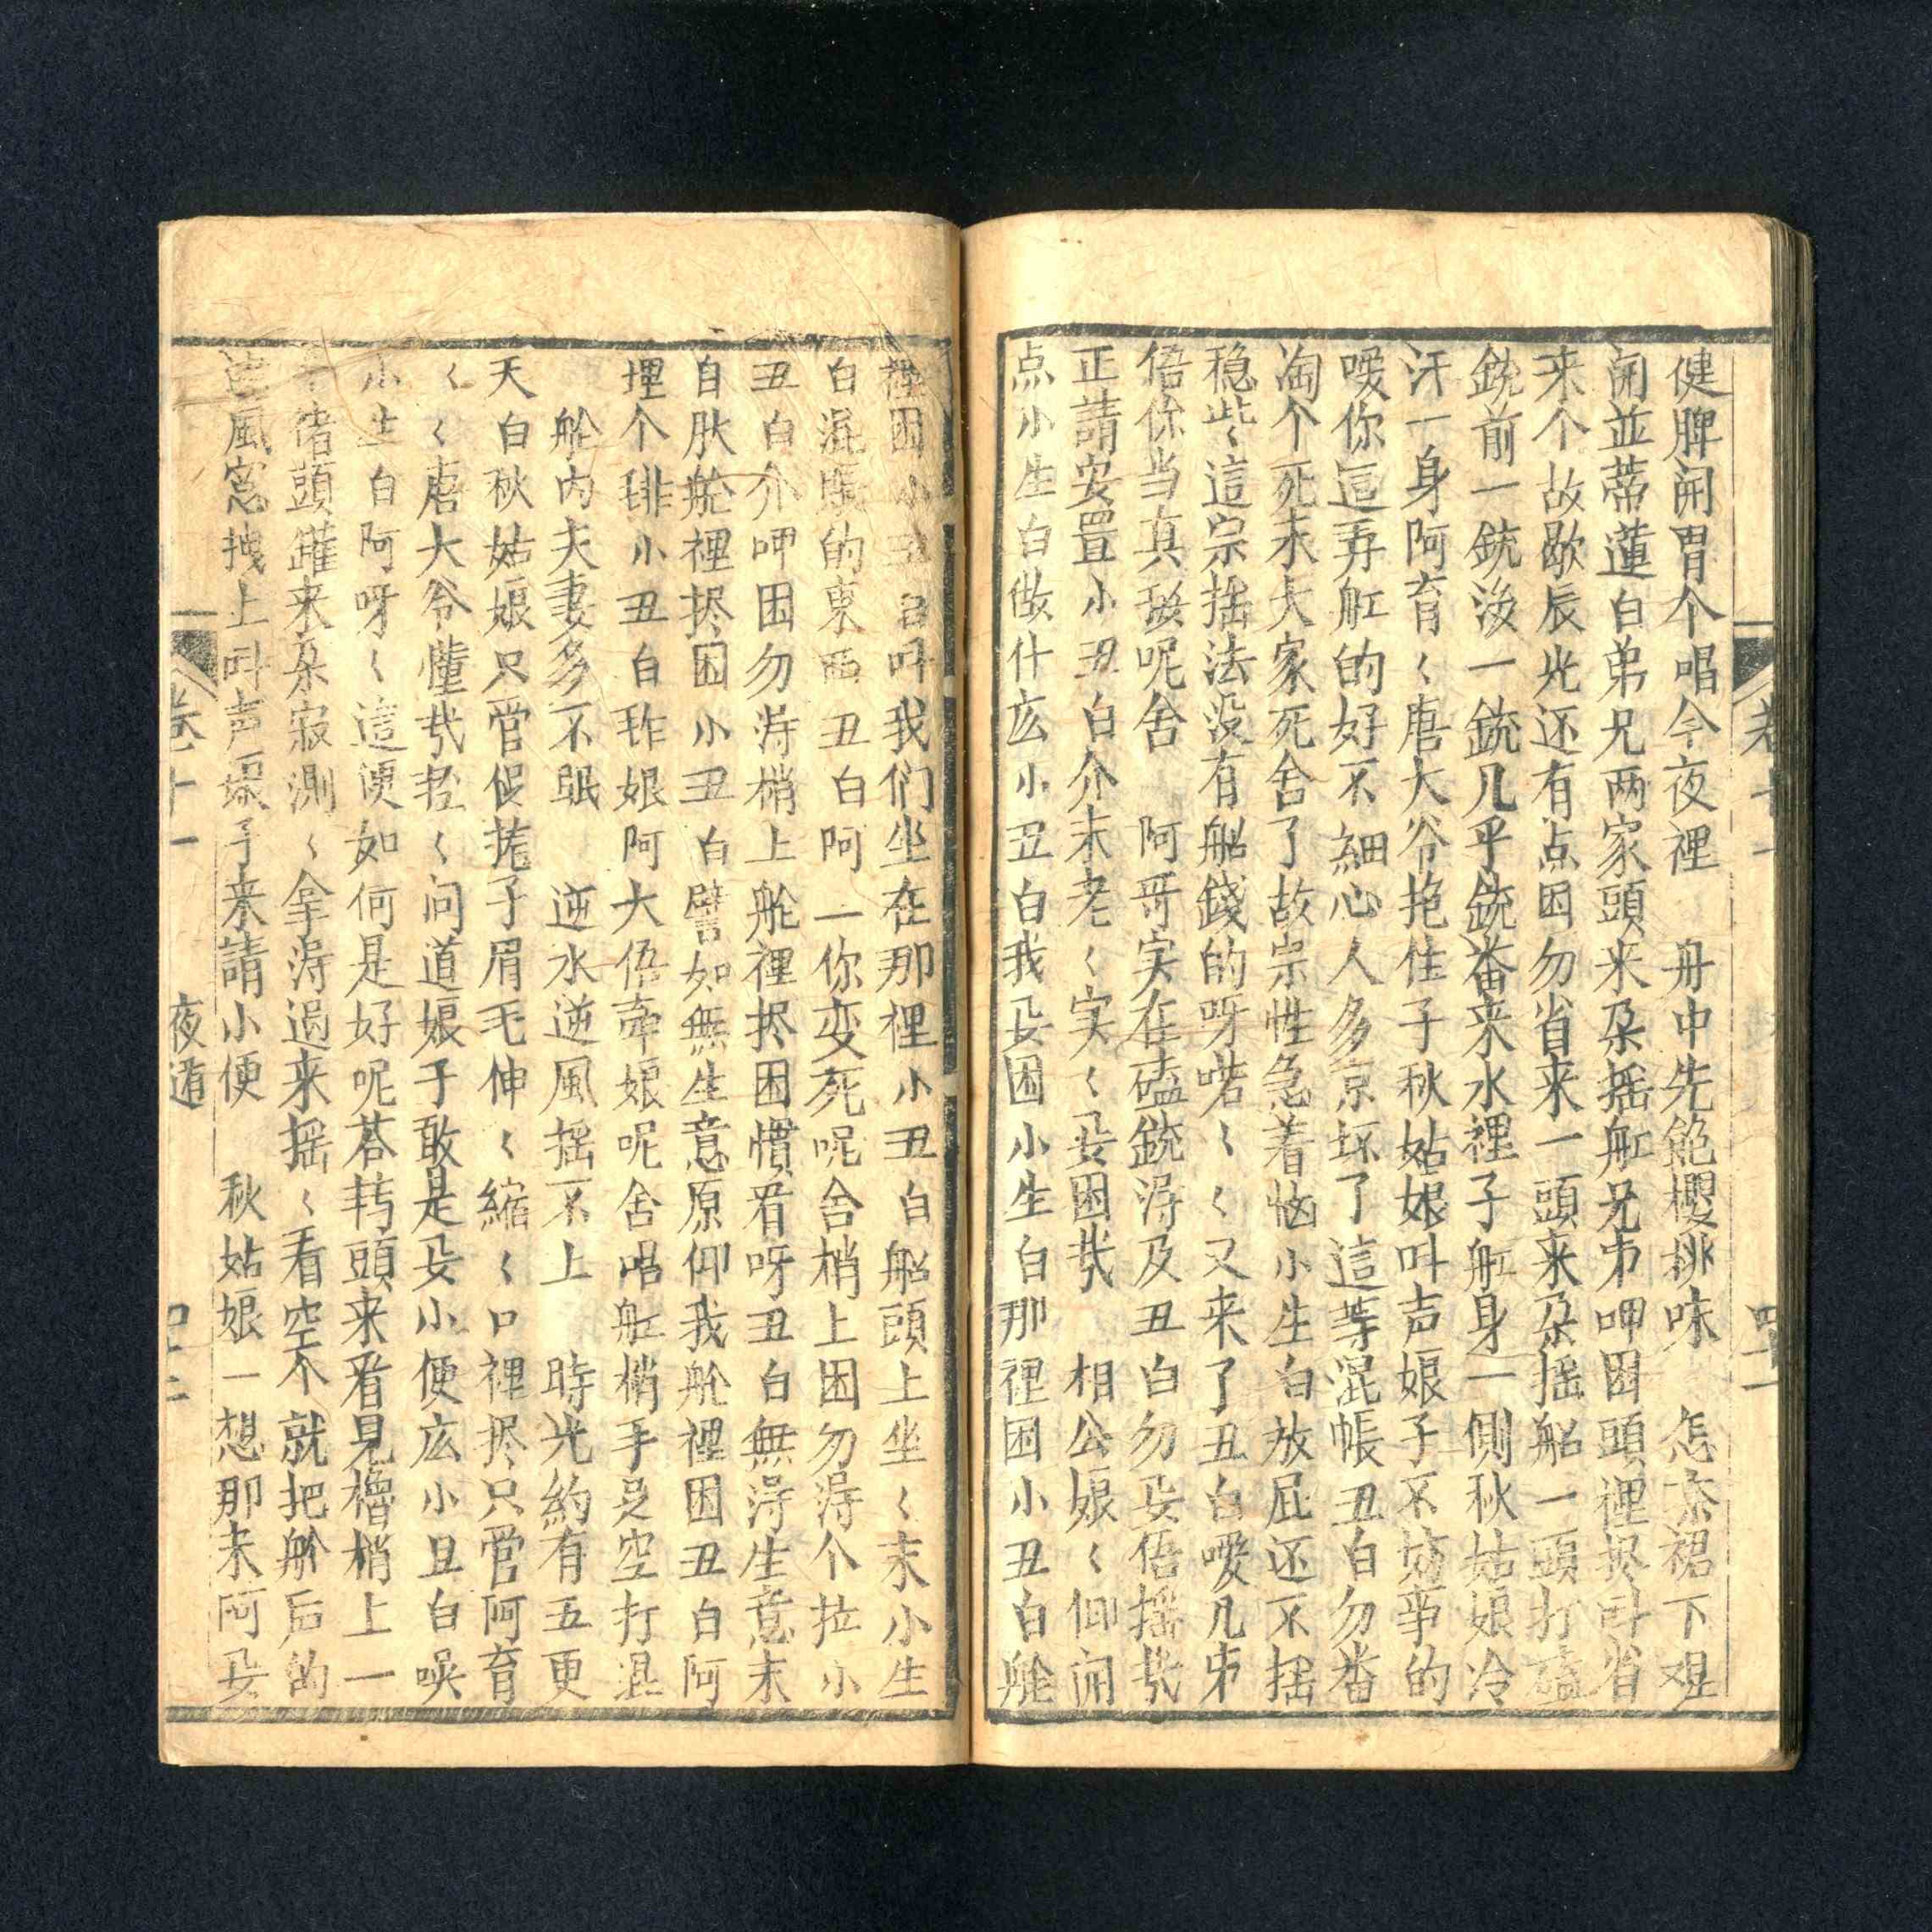 健脾闹胃个唱今夜裡　舟中先飽櫻排味　怎奈裙下难
闹並蒂蓮白弟兄两家頭来朶摇舡兄㐧呷困頭裡㧯叫省
来个故歇辰光还有点困勿省来一頭来朶摇船一頭打磕
銃前一銃後一銃几乎銃番来水裡子舡身一侧秋姑娘冷
汗一身阿育〻唐大爷抱住子秋姑娘叫声娘子不妨事的
嗳你這弄舡的好不細心人多京坏了這等混帳丑白勿番
淘个死末大家死舍了故宗性急着恼小生白放屁还不摇
稳些〻這宗摇法没有船錢的呀喏〻〻又来了丑白嗳几㐧
俉你当真骇呢舍　阿哥实在磕銃淂及丑白勿要俉摇哉
正請安置小丑白介末老〻实〻要困哉　相公娘〻仰闹
点小生白做什庅小丑白我要困小生白那裡困小丑白舱
裡困小生白叫我们坐在那裡小丑白船頭上坐〻末小生
白混賬的東西丑白阿一你变死呢舍梢上困勿淂个拉小
丑白介呷困勿淂梢上舱裡㧯困慣看呀丑白無淂生意末
自肰舱裡㧯困小丑白譬如無生意原仰我舱裡困丑白阿
埋个琲小丑白砟娘阿大俉牽娘呢舍唱舡梢手足空打混
舱内夫妻多不眠　逆水逆風摇不上　時光約有五更
天白秋姑娘只管促㧌子眉毛伸〻縮〻口裡㧯只管阿育
〻〻唐大爷懂哉𦂳〻问道娘子敢是要小便庅小丑白唤
小生白阿呀〻這便如何是好呢荅转頭来看見櫓梢上一
个猪頭罐来朶寂測〻拿淂過来摇〻看空个就把舱后的
遮風窓拽上叫声娘子来請小便　秋姑娘一想那末阿要
卷十一　夜遁　四十二